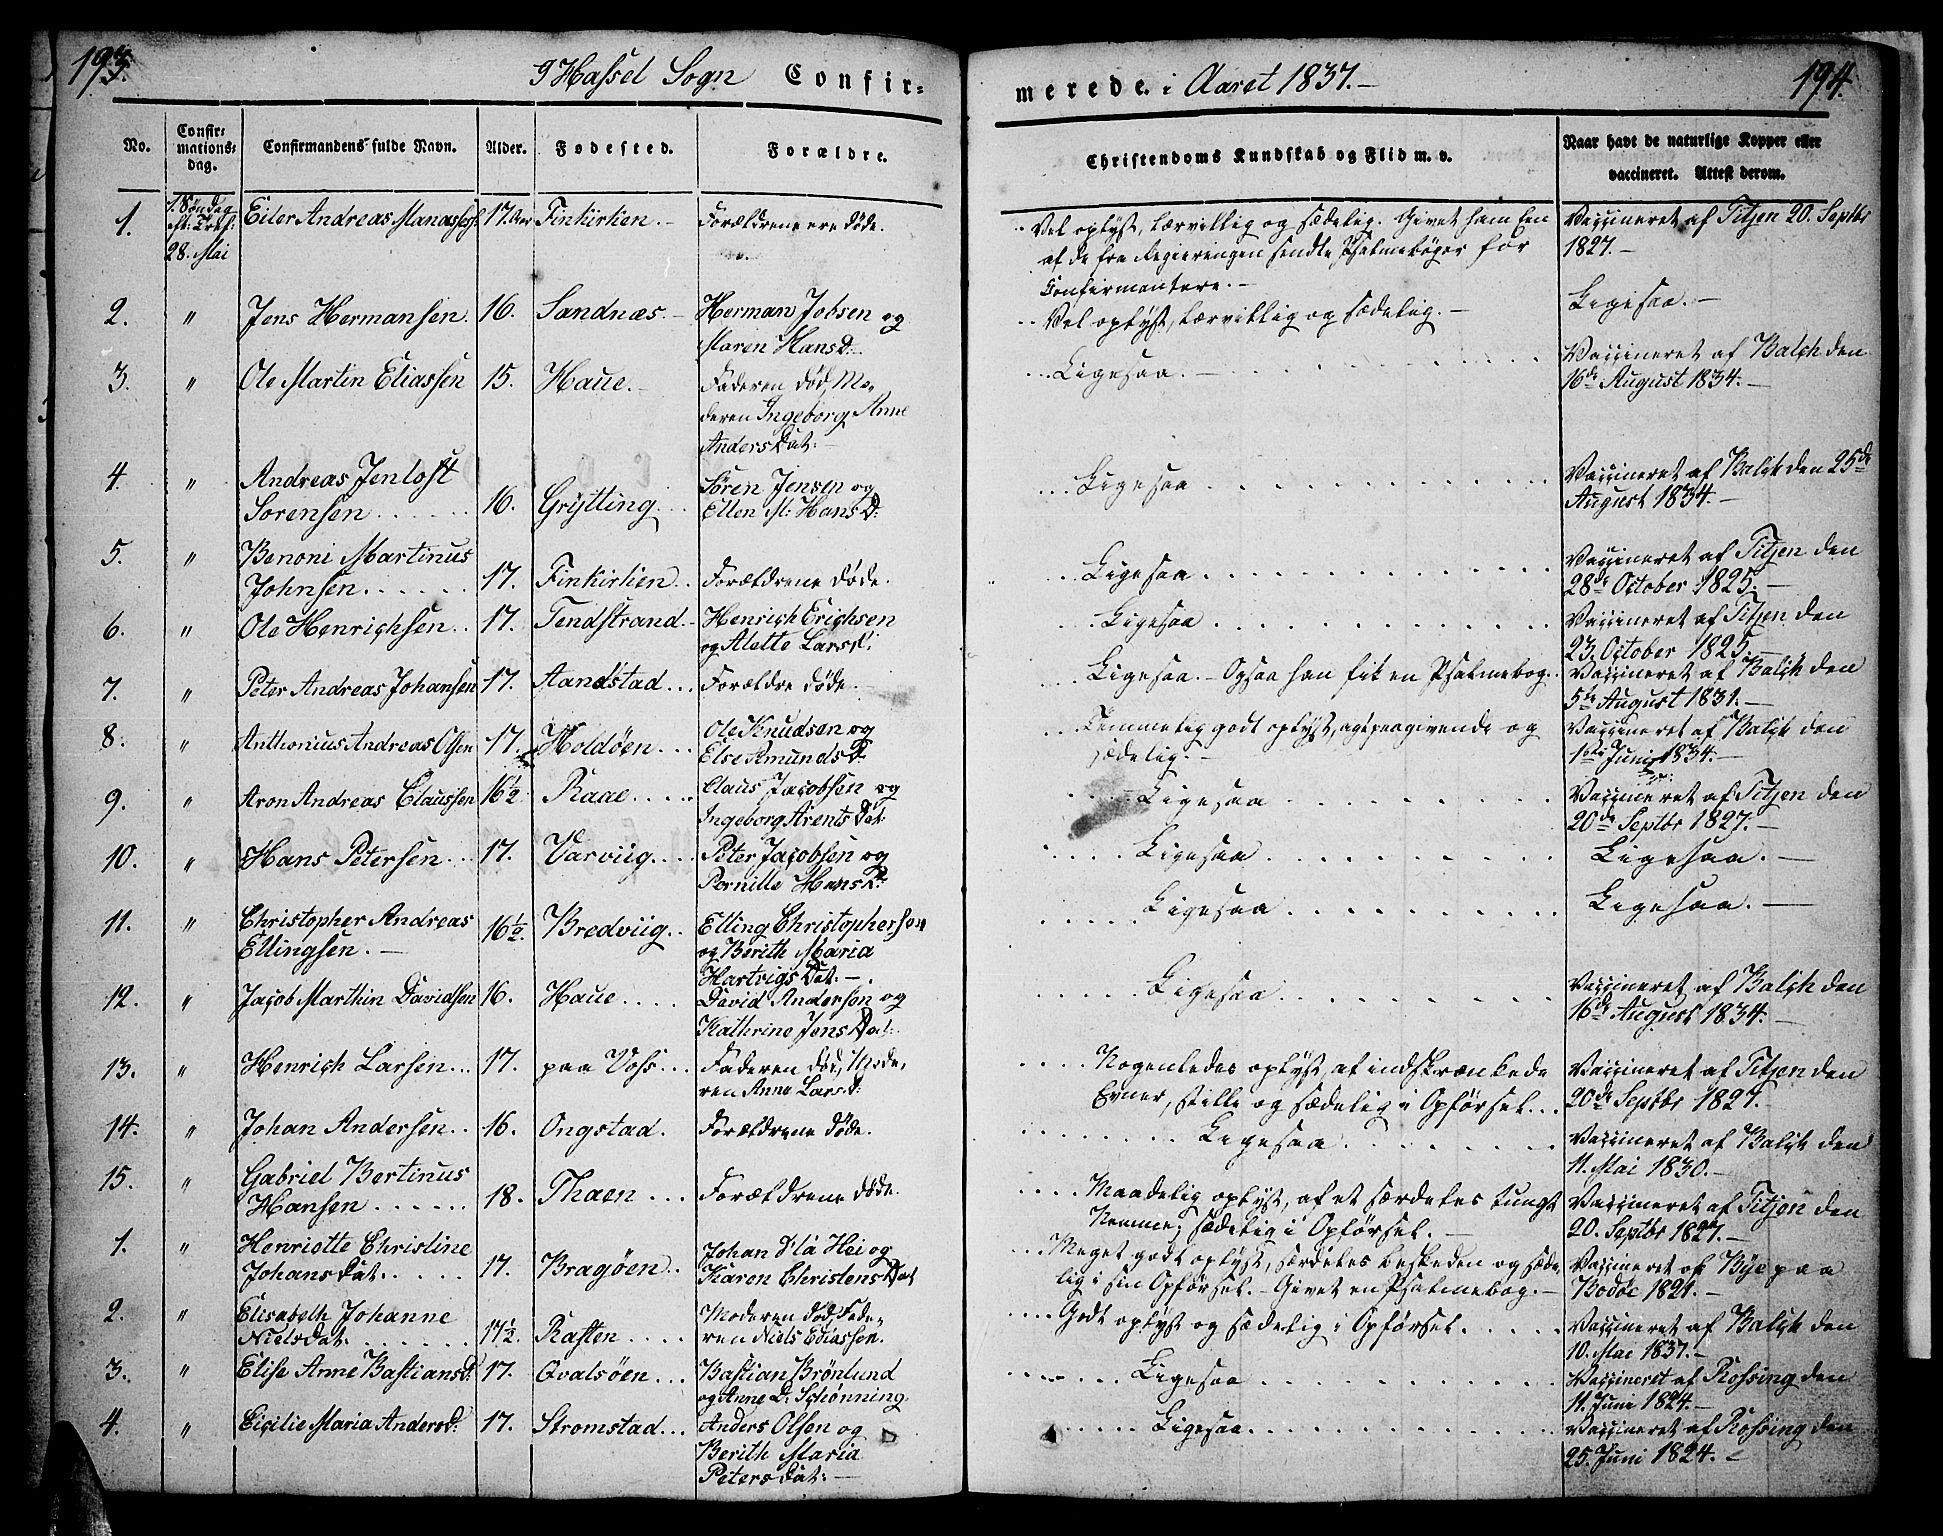 193.
I Hassel Sogn Confir=
No.
Confir=
mations=
dag.
Confirmandens fulde Navn.
Alder.
Fødested.
Forældre.
1.
1. Søndag
28. Mai
Eiler Andreas
17. Aar
Finkirkien.
Forældrene ere døde.
2.
"
Jens Hermansen.
16.
Sandnæs.
Herman Jobsen og
Maren HansD:
3.
"
Ole Martin Eliassen
15.
Haue.
Faderen død, Mo-
deren Ingeborg Anne
AndersDat:
4.
"
Andreas
Sørensen
16.
Grytting
Sören Jensen og
Ellen M: HansD:
5.
"
Benoni Martinus
Johnsen
17.
Finkirkien
Forældrene døde.
6.
"
Ole Henrichsen
17.
Tendstrand
Henrich Erichsen
og Alette LarsD:
7.
"
Peter Andreas Johansen
17.
Aandstad
Forældre døde.
8.
"
Anthonius Andreas Olsen
17.
Holdöen
Ole Knudsen og
Else AmundsD:
9.
"
Aron Andreas Claussen
16½
Raae
Claus Jacobsen og
Ingeborg ArentsDat:
10.
"
Hans Petersen
17.
Varviig
Peter Jacobsen og
Pernille HansD:
11.
"
Christopher Andreas
Ellingsen.
16½
Bredviig
Elling Christophersen
og Berith Maria
HartvigsDat:
12.
"
Jacob Marthin Davidsen
16.
Haue
David Andersen og
Kathrine JensDat:
13.
"
Henrich Larsen
17.
paa Voss
Faderen død, Mode-
ren Anne LarsD:
14.
"
Johan Andersen
16.
Ongstad.
Forældrene døde.
15.
"
Gabriel Bertinus
Hansen
18.
Thaen
Forældrene døde.
1.
"
Henriette Christine
JohansDat.
17.
Bragöen
Johan Hei og
Karen ChristensDat
2.
"
Elisabeth Johanne
NielsDat.
17½
Raften
Moderen død, Fade-
ren Niels Eliassen.
3.
"
Elise Anne BastiansD:
17.
Qvalsöen
Bastian Brönlund
og Anne D. Schönning
4.
"
Cicilie Maria AndersD:
17.
Stromstad
Anders Olsen og
Berith Maria
PetersDat:
merede. i Aaret 1837.
194.
Christendoms Kundskab og Flid m. v.
Naar havt de naturlige Kopper eller
vaccineret. Attest derom.
Vel oplyst, lærvillig og sædelig. Givet ham Een
af de fra Regieringen sendte Psalmebøger for
Confirmantere.
Vaccineret af Titjen 20. Septbr
1827.
Vel oplyst, lærvillig og sædelig.
Ligesaa.
Ligesaa.
Vaccineret af Balch den
16de August 1834.
Ligesaa
Vaccineret af Balch den 25de
August 1834.
Ligesaa
Vaccineret af Titjen den
28de October 1825.
Ligesaa
Vaccineret af Titjen den
23. October 1825.
Ligesaa. Ogsaa han fik en Psalmebog.
Vaccineret af Balch den
5te August 1831.
Temmelig godt oplyst, agtpaagivende og
sædelig.
Vaccineret af Balch den
1ste Juni 1834.
Ligesaa
Vaccineret af Titjen den
20de Septbr 1827.
Ligesaa
Ligesaa.
Ligesaa
Ligesaa.
Ligesaa
Vaccineret af Balch den
16de August 1834.
Nogenledes oplyst, af indskrænkede
Evner, stille og sædelig i Opførsel.
Vaccineret af Titjen den
20de Septbr 1827.
Ligesaa
Vaccineret af Balch den
11. Mai 1830.
Maadelig oplyst, af et særdeles tungt
Nemme; sædelig i Opførsel.
Vaccineret af Titjen den
20. Septbr 1827.
Meget godt oplyst, særdeles beskeden og sæde-
lig i sin Opførsel. Givet en Psalmebog.
Vaccineret af Bye paa
Bodöe 1821.
Godt oplyst og sædelig i Opførsel.
Vaccineret af Balch den
10. Mai 1837.
Ligesaa
Vaccineret af Rossing den
11. Juni 1824.
Ligesaa
Vaccineret af Rossing den
25. Juni 1824.